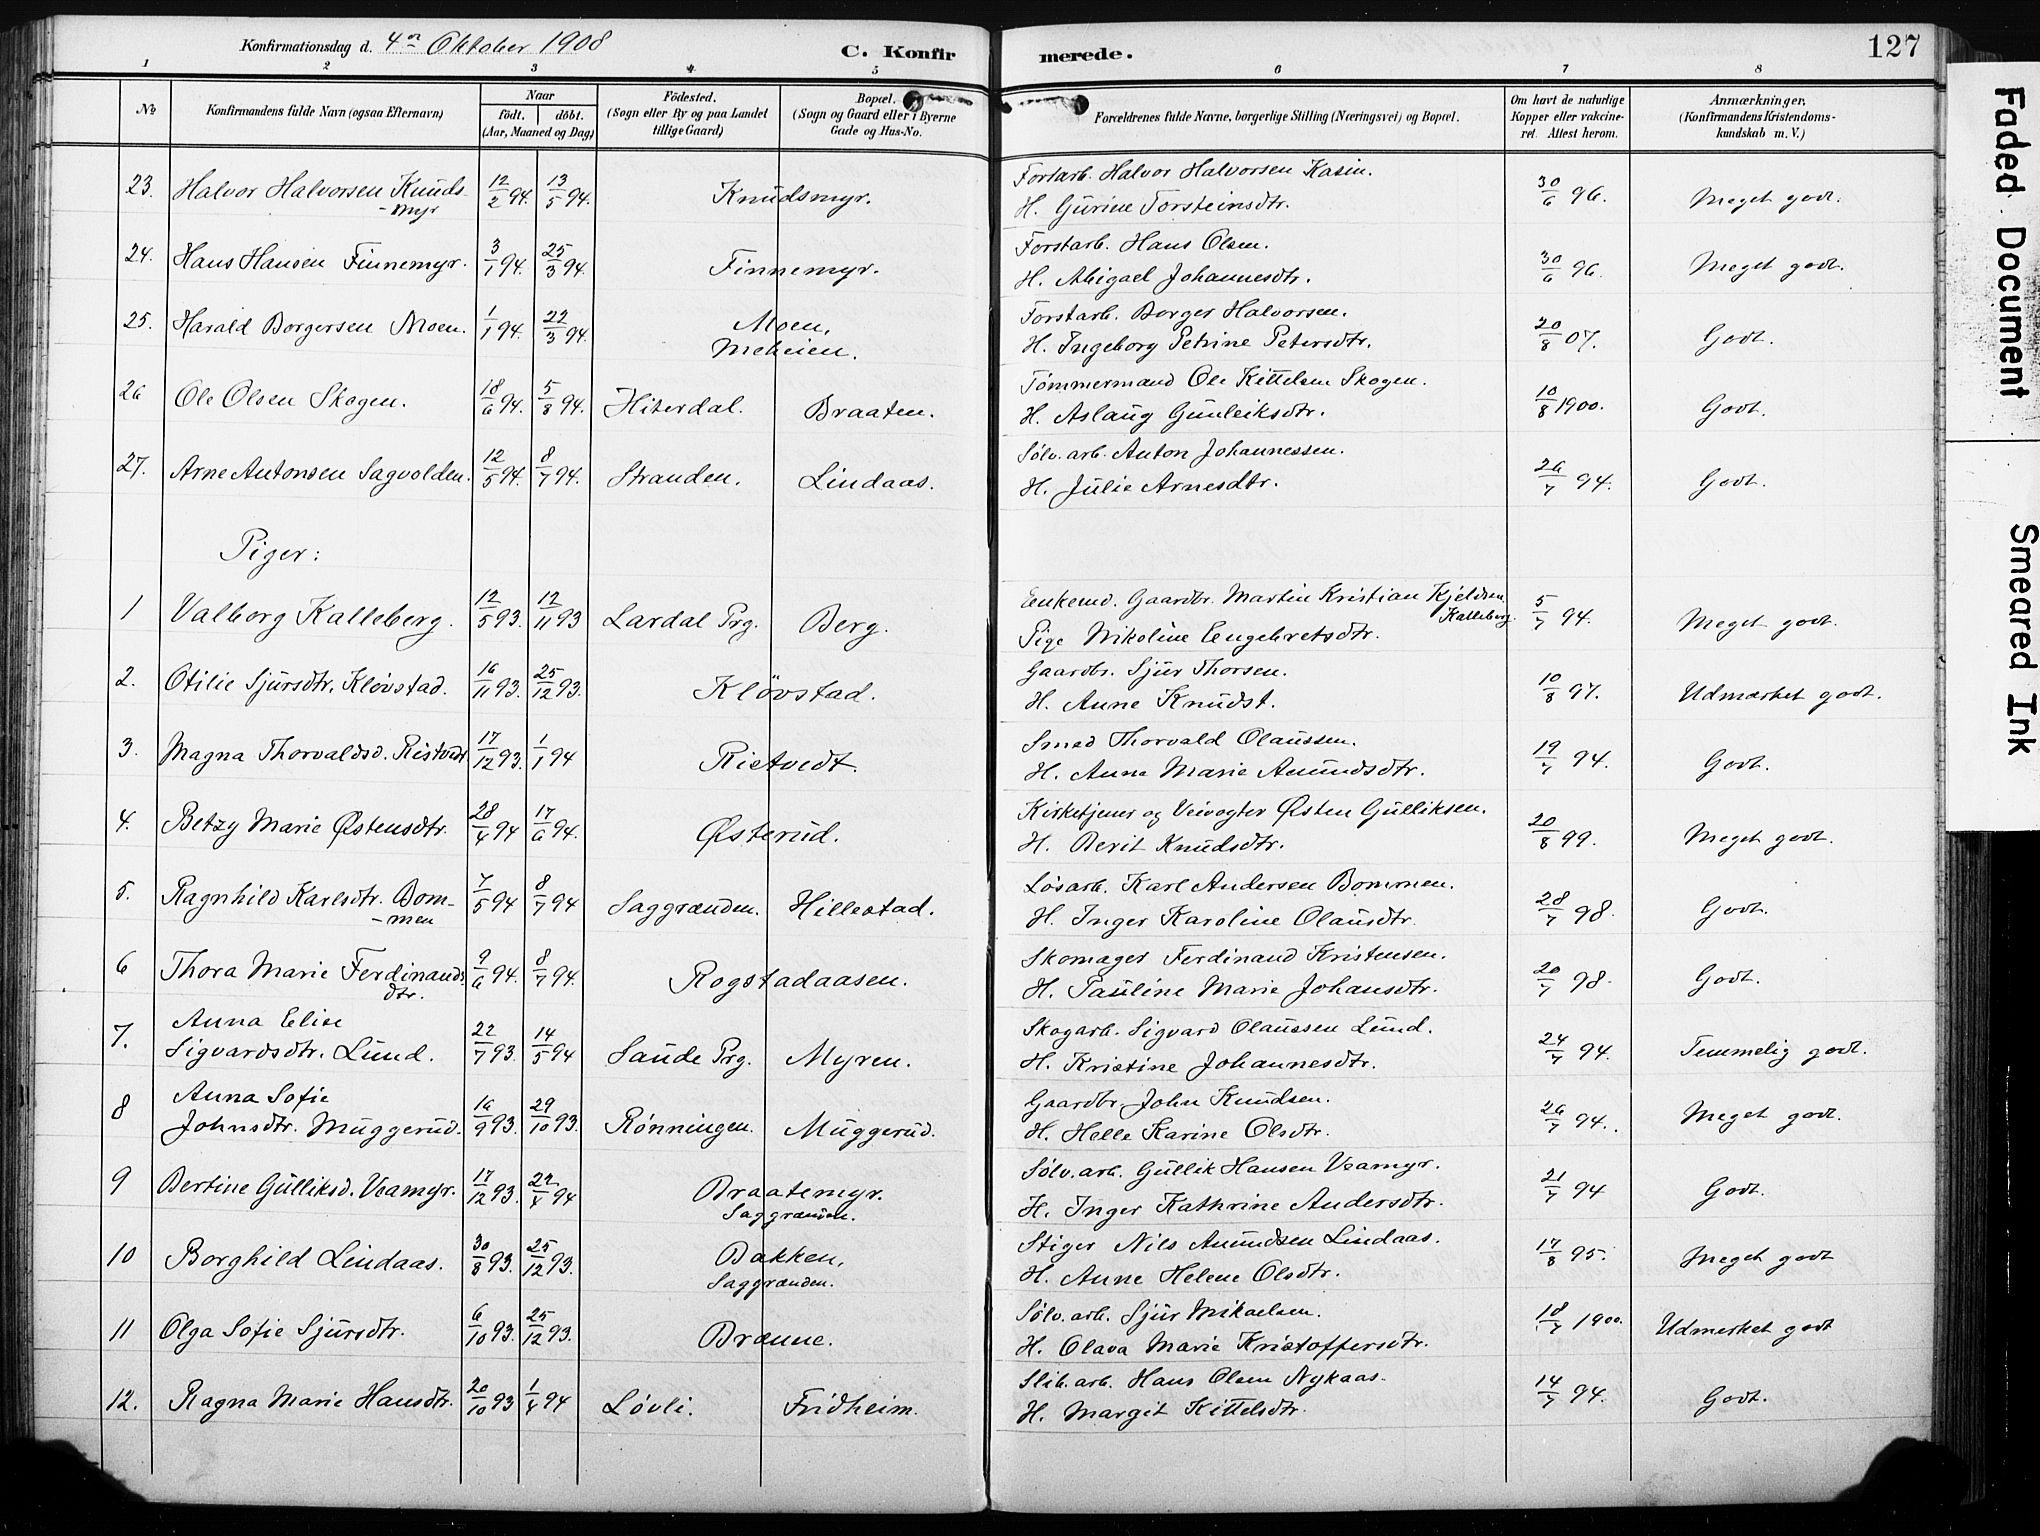 Konfirmationsdag d. 4de Oktober 1908
C. Konfirmerede.
127
1 2 3 4 5 6 7 8
No
Konfirmandens fulde Navn (ogsaa Efternavn)
Naar
födt. döbt.
(Aar, Maaned og Dag)
Födested.
(Sogn eller By og paa Landet tillige Gaard)
Bopæl.
(Sogn og Gaard eller i Byerne Gade og Hus-No.
Forældrenes fulde Navne, borgerlige Stilling (Næringsvei) og Bopæl.
Om havt de naturlige Kopper eller vakcineret. Attest herom.
Anmærkninger.
(Konfirmandens Kristendomskundskab m. V.)
23. Halvor Halvorsen Knuds-myr 12/2 94. 13/5 94. Knudsmyr. Forstarb. Halvor Halvorsen Kasin. 30/6 96. Meget godt.
H. Gurine Torsteinsdtr.
24. Hans Hansen Finnemyr. 3/1 94. 25/3 94. Finnemyr. Forstarb. Hans Olsen. 30/6 96. Meget godt.
H. Abigael Johannesdtr.
25. Harald Borgersen Moen. 1/1 94. 22/3 94. Moen, Meheien. Forstarb. Borger Halvorsen. 20/8 07. Godt.
H. Ingeborg Petrine Petersdtr.
26 Ole Olsen Skogen. 18/6 94. 5/8 94. Hiterdal. Braaten. Tømmermand Ole Kittelsen Skogen. 10/8 1900. Godt.
H. Aslaug Gunleiksdtr.
27. Arne Antonsen Sagvolden. 12/5 94. 8/7 94. Stranden. Lindaas. Sølv.arb. Anton Johannessen. 26/7 94. Godt.
H. Julie Arnesdtr.
Piger:
1 Valborg Kalleberg. 12/5 93. 12/11 93 Lardal Prg. Berg. Enkemd. Gaardbr. Martin Kristian Kjeldsen Kalleberg. 5/7 94. Meget godt.
Pige Nikoline Engebretsdtr.
2. Otilie Sjursdtr. Kløvstad. 16/11 93. 25/12 93. Kløvstad. Gaardbr. Sjur Thorsen. 10/8 97. Udmærket godt.
H. Anne Knudst.
3. Magna Thorvaldsd. Ristvedt 17/12 93. 1/1 94 Ristvedt. Smed Thorvald Olaussen. 19/7 94. Godt.
H. Anne Marie Amundsdtr.
4. Betzy Marie Østensdtr. 28/4 94 17/6 94. Østerud. Kirketjener og Veivogter Østen Gulliksen. 20/8 99. Meget godt.
H. Berit Knudsdtr.
5. Ragnhild Karlsdtr. Bom-men 7/5 94 8/7 94 Saggrænden. Hillestad. Løsarb. Karl Andersen Bommen. 28/7 98. Godt.
H. Inger Karoline Olausdtr
6 Thora Marie Ferdinandsdtr. 9/6 94. 8/7 94. Rogstadaasen. Skomager Ferdinand Kristensen. 20/7 98. Godt.
H. Pauline Marie Johansdtr.
7. Anna Elise Sigvardsdtr. Lund. 22/7 93. 14/5 94 Saude Prg. Myren. Skogarb. Sigvard Olaussen Lund. 24/7 94. Temmelig godt.
H. Kristine Johannesdtr.
8 Anna Sofie Johnsdtr. Muggerud. 16/9 93. 29/10 93. Rønningen. Muggerud. Gaardbr. John Knudsen. 26/7 94. Meget godt.
H. Helle Karine Olsdtr.
9 Bertine Gulliksd. Veamyr. 17/12 93. 22/4 94 Braatemyr. Saggrænden. Sølv.arb. Gullik Hansen Veamyr. 21/7 94 Godt.
H. Inger Kathrine Andersdtr.
10 Borghild Lindaas. 30/8 93. 25/12 93. Bakken, Saggrænden. Stiger Nils Amundsen Lindaas. 17/8 95. Meget godt
H. Anne Helene Olsdtr.
11 Olga Sofie Sjursdtr. 6/10 93. 25/12 93. Brænne. Sølv.arb. Sjur Mikaelsen. 18/7 1900. Udmærket godt
H. Olava Marie Kristoffersdtr.
12. Ragna Marie Hansdtr. 20/10 93 1/4 94 Løvli. Fridheim. Slib.arb. Hans Olsen Nykaas. 14/7 94. Godt.
H. Margit Kittelsdtr.
Faded Document
Smeared Ink